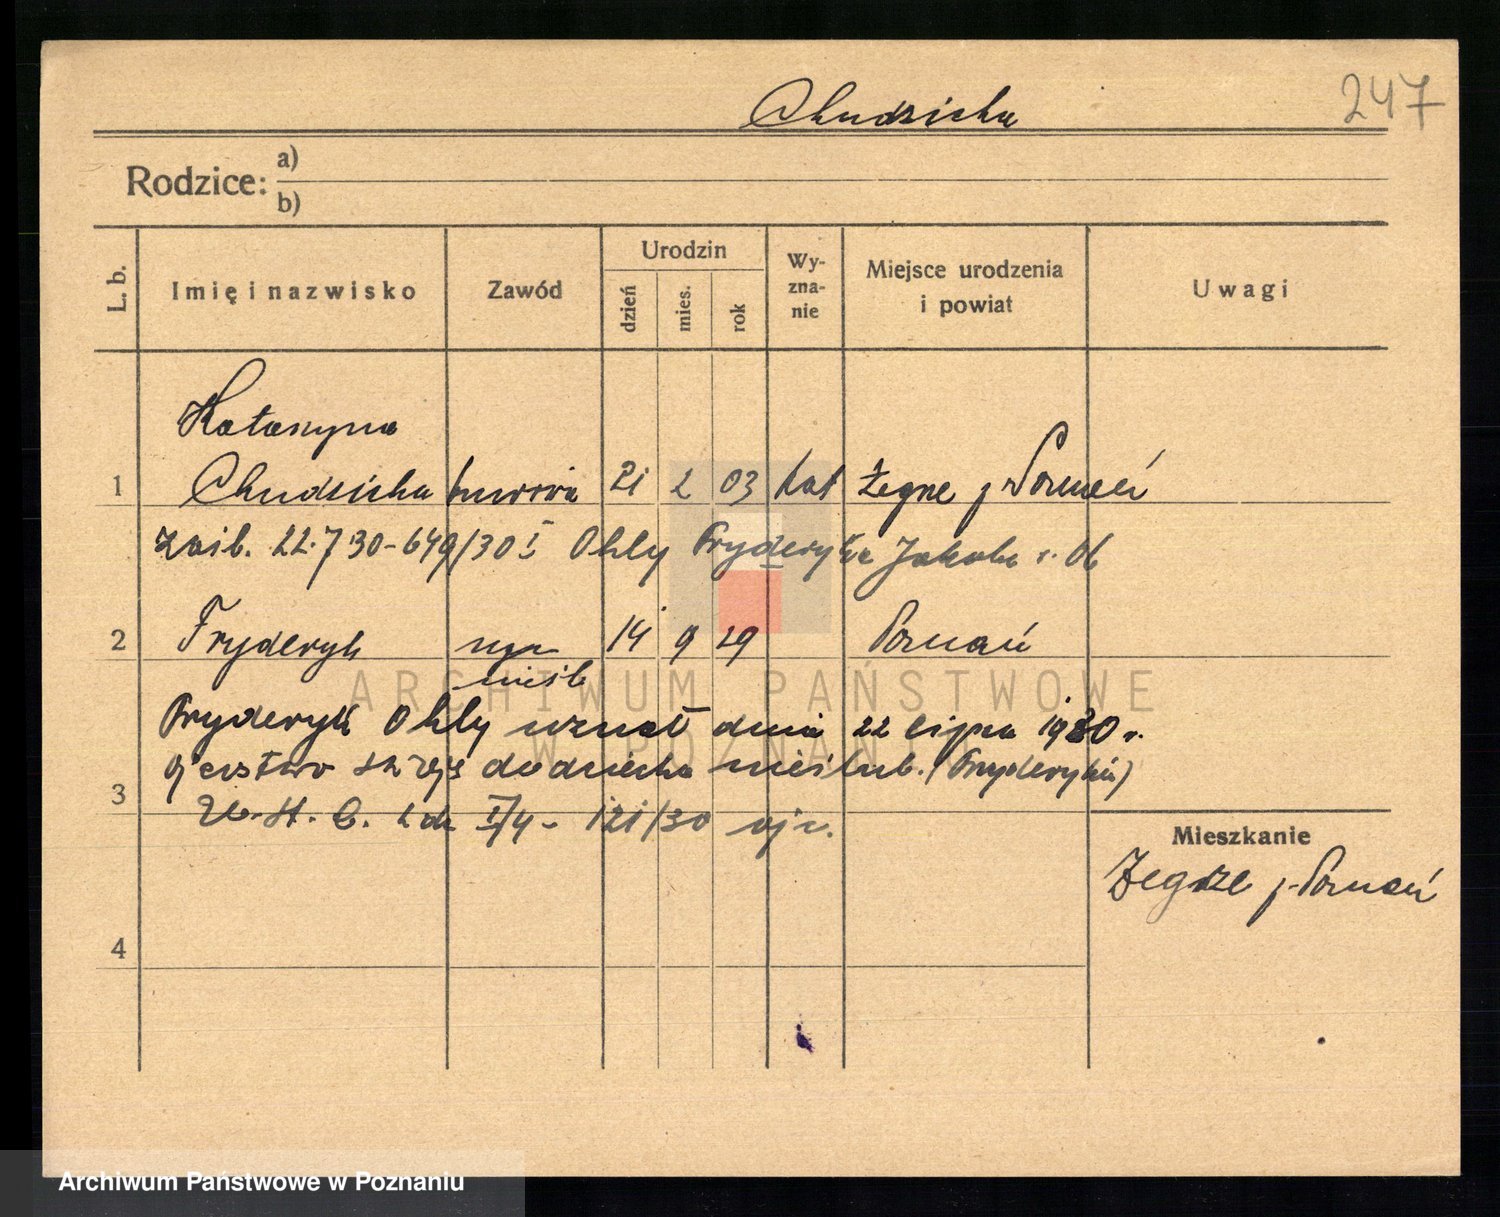 247
Chudzicka
Rodzice: a)
b)
L. b. Imię i nazwisko Zawód Urodzin dzień mies. rok Wyzna-nie Miejsce urodzenia i powiat Uwagi
Katarzyna
1 Chudzicka 21 2 03 kat Żegrze p. Poznań
zaśl. 22.7 30 - 649/30 I Ohly Fryderyka Jakoba
2 Fryderyk syn 14 9 29 Poznań
nieśl.
Fryderyk Ohly uznał dnia 22 lipca 1930 r.
ojcostwo swoje do dziecka nieślub. (Fryderyka)
3 U. St. C. I/4 - 121/30
Mieszkanie
Żegrze p. Poznań
4
ARCHIWUM PAŃSTWOWE
W POZNANIU
Archiwum Państwowe w Poznaniu